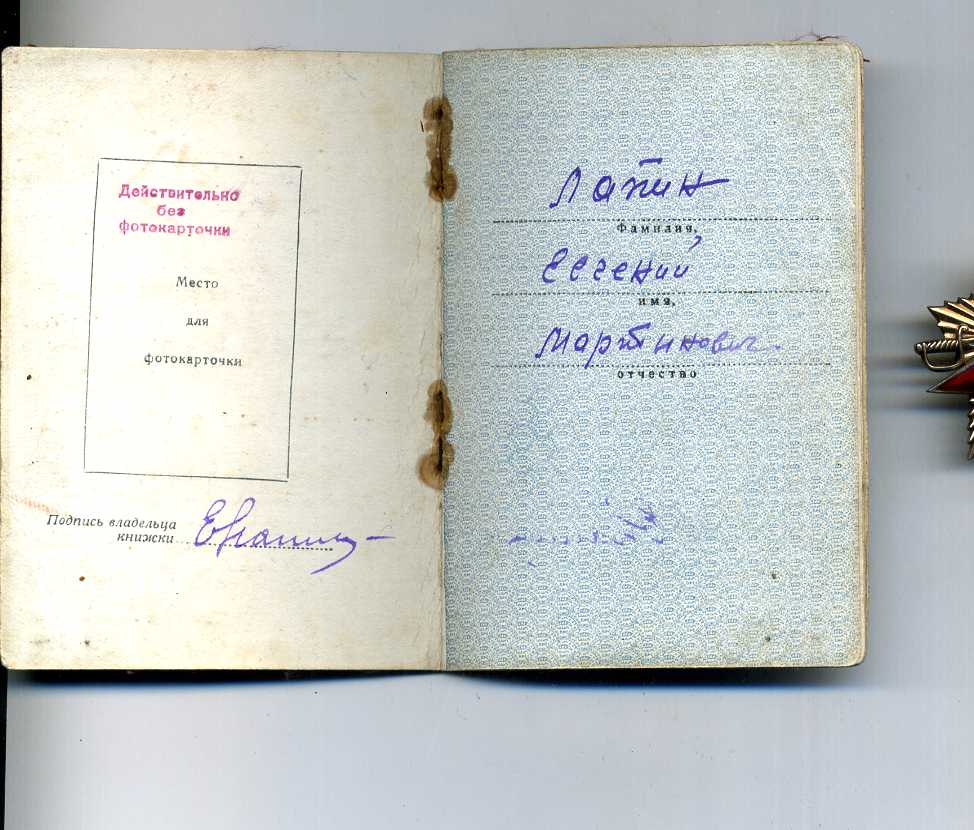 Действительно
без
фотокарточки
Место
для
фотокарточки
Подпись владельца
книжки
Лапин
Фамилия,
Евгений
имя,
Мартинович
отчество